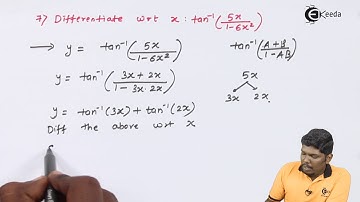 7) Differentiate wrt x : tan⁻¹(5x/1-6x²)
Ekeeda
→ y = tan⁻¹(5x/1-6x²)
tan⁻¹(A+B/1-AB)
y = tan⁻¹(3x+2x/1-3x·2x)
5x
3x 2x
y = tan⁻¹(3x) + tan⁻¹(2x)
Diff the above wrt x